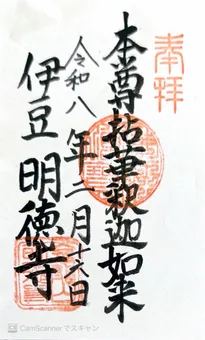 奉拝
本尊拈華釈迦如来
令和八年二月十六日
伊豆 明徳寺
CamScannerでスキャン